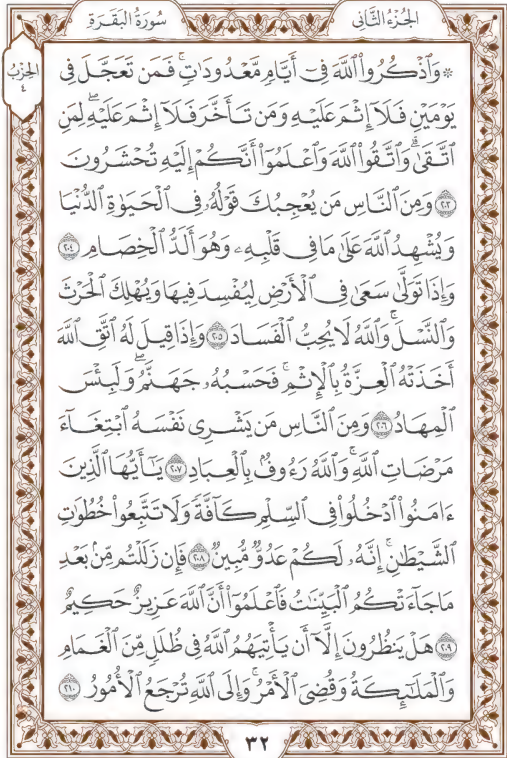 الجُزْءُ الثَّانِى
سُورَةُ البَقَرَةِ
الحِزْبُ
٤
۞ وَٱذْكُرُوا۟ ٱللَّهَ فِىٓ أَيَّامٍ مَّعْدُودَٰتٍ ۚ فَمَن تَعَجَّلَ فِى
يَوْمَيْنِ فَلَآ إِثْمَ عَلَيْهِ وَمَن تَأَخَّرَ فَلَآ إِثْمَ عَلَيْهِ ۖ لِمَنِ
ٱتَّقَىٰ ۗ وَٱتَّقُوا۟ ٱللَّهَ وَٱعْلَمُوٓا۟ أَنَّكُمْ إِلَيْهِ تُحْشَرُونَ
٢٠٣ وَمِنَ ٱلنَّاسِ مَن يُعْجِبُكَ قَوْلُهُۥ فِى ٱلْحَيَوٰةِ ٱلدُّنْيَا
وَيُشْهِدُ ٱللَّهَ عَلَىٰ مَا فِى قَلْبِهِۦ وَهُوَ أَلَدُّ ٱلْخِصَامِ ٢٠٤
وَإِذَا تَوَلَّىٰ سَعَىٰ فِى ٱلْأَرْضِ لِيُفْسِدَ فِيهَا وَيُهْلِكَ ٱلْحَرْثَ
وَٱلنَّسْلَ ۗ وَٱللَّهُ لَا يُحِبُّ ٱلْفَسَادَ ٢٠٥ وَإِذَا قِيلَ لَهُ ٱتَّقِ ٱللَّهَ
أَخَذَتْهُ ٱلْعِزَّةُ بِٱلْإِثْمِ ۚ فَحَسْبُهُۥ جَهَنَّمُ ۚ وَلَبِئْسَ
ٱلْمِهَادُ ٢٠٦ وَمِنَ ٱلنَّاسِ مَن يَشْرِى نَفْسَهُ ٱبْتِغَآءَ
مَرْضَاتِ ٱللَّهِ ۗ وَٱللَّهُ رَءُوفٌۢ بِٱلْعِبَادِ ٢٠٧ يَٰٓأَيُّهَا ٱلَّذِينَ
ءَامَنُوا۟ ٱدْخُلُوا۟ فِى ٱلسِّلْمِ كَآفَّةً وَلَا تَتَّبِعُوا۟ خُطُوَٰتِ
ٱلشَّيْطَٰنِ ۚ إِنَّهُۥ لَكُمْ عَدُوٌّ مُّبِينٌ ٢٠٨ فَإِن زَلَلْتُم مِّنۢ بَعْدِ
مَا جَآءَتْكُمُ ٱلْبَيِّنَٰتُ فَٱعْلَمُوٓا۟ أَنَّ ٱللَّهَ عَزِيزٌ حَكِيمٌ
٢٠٩ هَلْ يَنظُرُونَ إِلَّآ أَن يَأْتِيَهُمُ ٱللَّهُ فِى ظُلَلٍ مِّنَ ٱلْغَمَامِ
وَٱلْمَلَٰٓئِكَةُ وَقُضِىَ ٱلْأَمْرُ ۚ وَإِلَى ٱللَّهِ تُرْجَعُ ٱلْأُمُورُ ٢١٠
٣٢